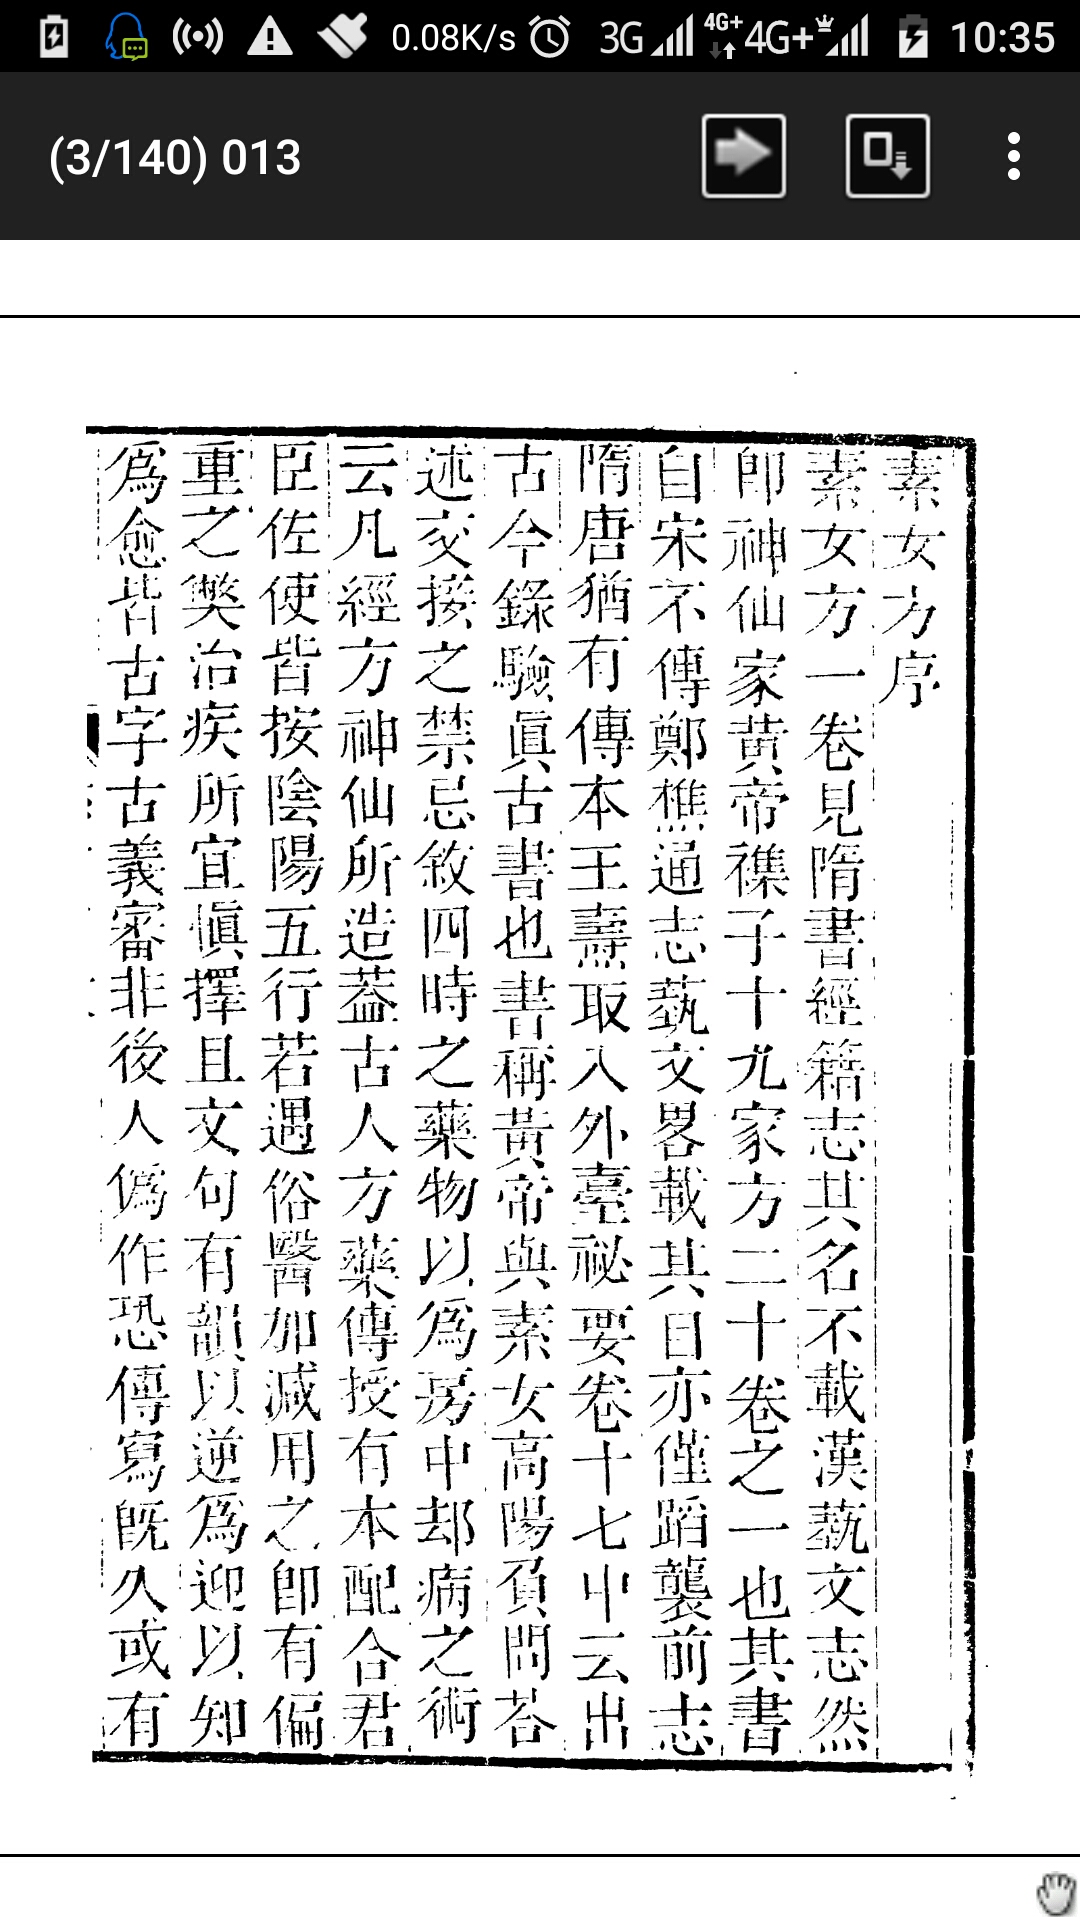 0.08K/s 3G 4G+ 4G+ 10:35
(3/140) 013
素女方序
素女方一卷見隋書經籍志其名不載漢蓺文志然
卽神仙家黃帝襍子十九家方二十卷之一也其書
自宋不傳鄭樵通志蓺文畧載其目亦僅蹈襲前志
隋唐猶有傳本王燾取入外臺祕要卷十七中云出
古今錄驗眞古書也書稱黃帝與素女高陽負問荅
述交接之禁忌敘四時之藥物以爲房中却病之術
云凡經方神仙所造葢古人方藥傳授有本配合君
臣佐使皆按陰陽五行若遇俗醫加減用之卽有偏
重之獘治疾所宜愼擇且文句有韻以逆爲迎以知
爲愈皆古字古義審非後人僞作恐傳寫旣久或有